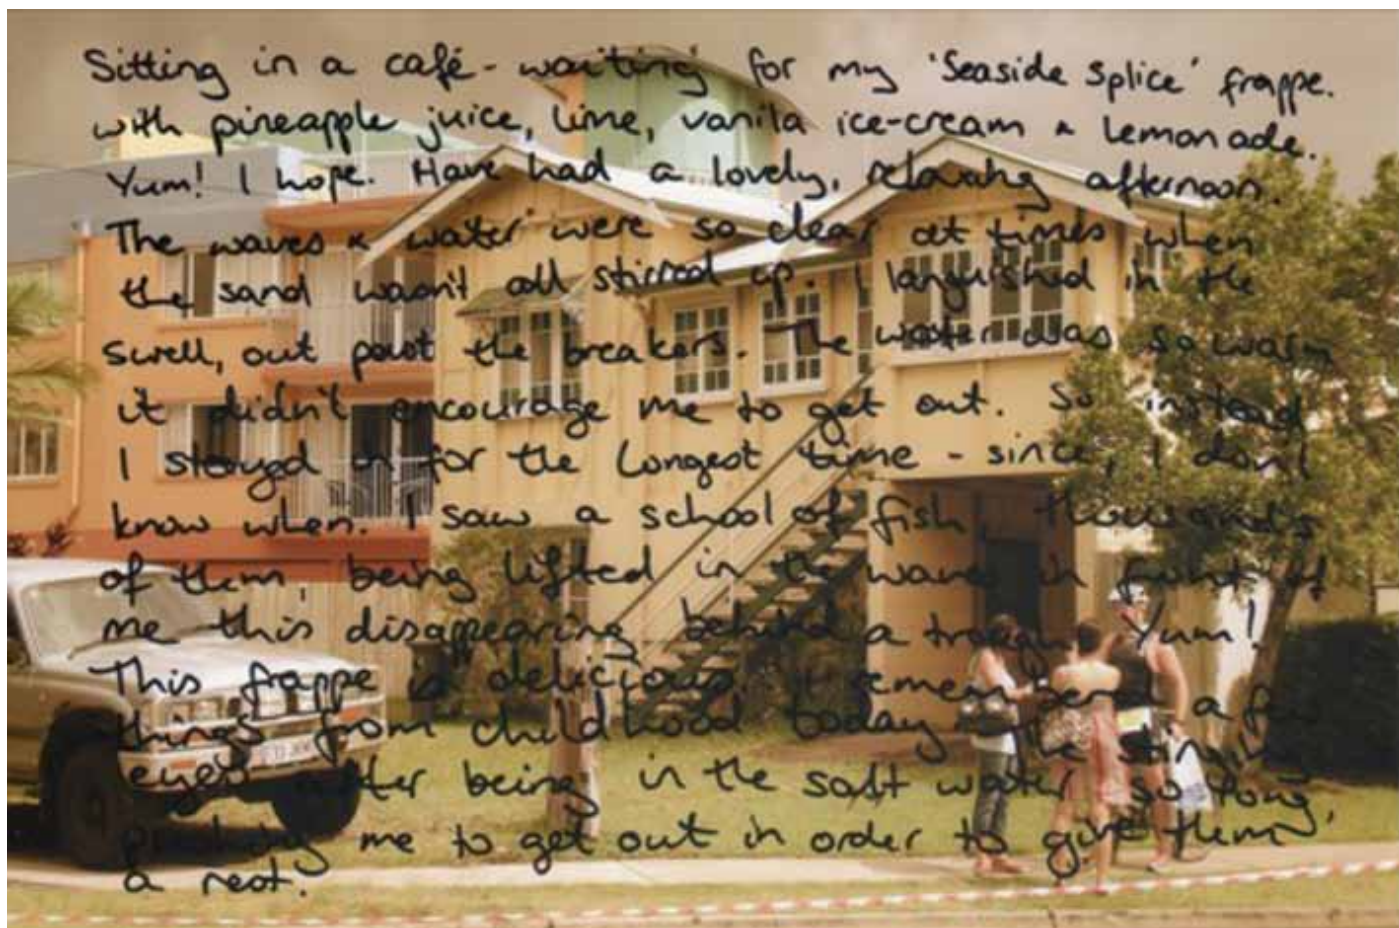 Sitting in a café - waiting for my 'Seaside Splice' frappe.
with pineapple juice, lime, vanila ice-cream & lemonade.
Yum! I hope. Have had a lovely, relaxing afternoon.
The waves & water were so clear at times when
the sand wasn't all stirred up. I languished in the
swell, out past the breakers. The water was so warm
it didn't encourage me to get out. So instead
I stayed in for the longest time - since, I don't
know when. I saw a school of fish, thousands
of them, being lifted in the wave in front of
me this disappearing behind a trough. Yum!
This frappe is delicious. I remembered a few
things from childhood today - the stingin
eyes after being in the salt water so long,
pushing me to get out in order to give them
a rest.